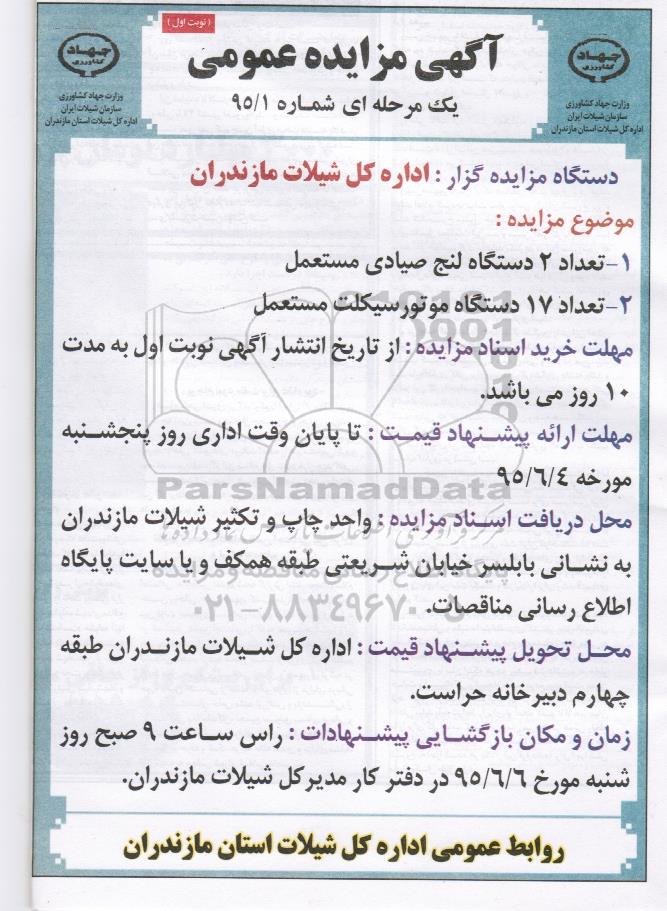 (نوبت اول)
آگهی مزایده عمومی
یک مرحله ای شماره ۹۵/۱
جهاد
کشاورزی
وزارت جهاد کشاورزی
سازمان شیلات ایران
اداره کل شیلات استان مازندران
جهاد
کشاورزی
وزارت جهاد کشاورزی
سازمان شیلات ایران
اداره کل شیلات استان مازندران
دستگاه مزایده گزار : اداره کل شیلات مازندران
موضوع مزایده :
۱-تعداد ۲ دستگاه لنج صیادی مستعمل
۲-تعداد ۱۷ دستگاه موتورسیکلت مستعمل
مهلت خرید اسناد مزایده : از تاریخ انتشار آگهی نوبت اول به مدت
۱۰ روز می باشند.
مهلت ارائه پیشنهاد قیمت : تا پایان وقت اداری روز پنجشنبه
مورخه ۹۵/۶/۴
ParsNamadData
محل دریافت اسناد مزایده : واحد چاپ و تکثیر شیلات مازندران
به نشانی بابلسر خیابان شریعتی طبقه همکف و یا سایت پایگاه
اطلاع رسانی مناقصات.
۰۲۱-۸۸۳۴۹۶۷۰-۵
محل تحویل پیشنهاد قیمت : اداره کل شیلات مازندران طبقه
چهارم دبیرخانه حراست.
زمان و مکان بازگشایی پیشنهادات : راس ساعت ۹ صبح روز
شنبه مورخ ۹۵/۶/۶ در دفتر کار مدیرکل شیلات مازندران.
روابط عمومی اداره کل شیلات استان مازندران